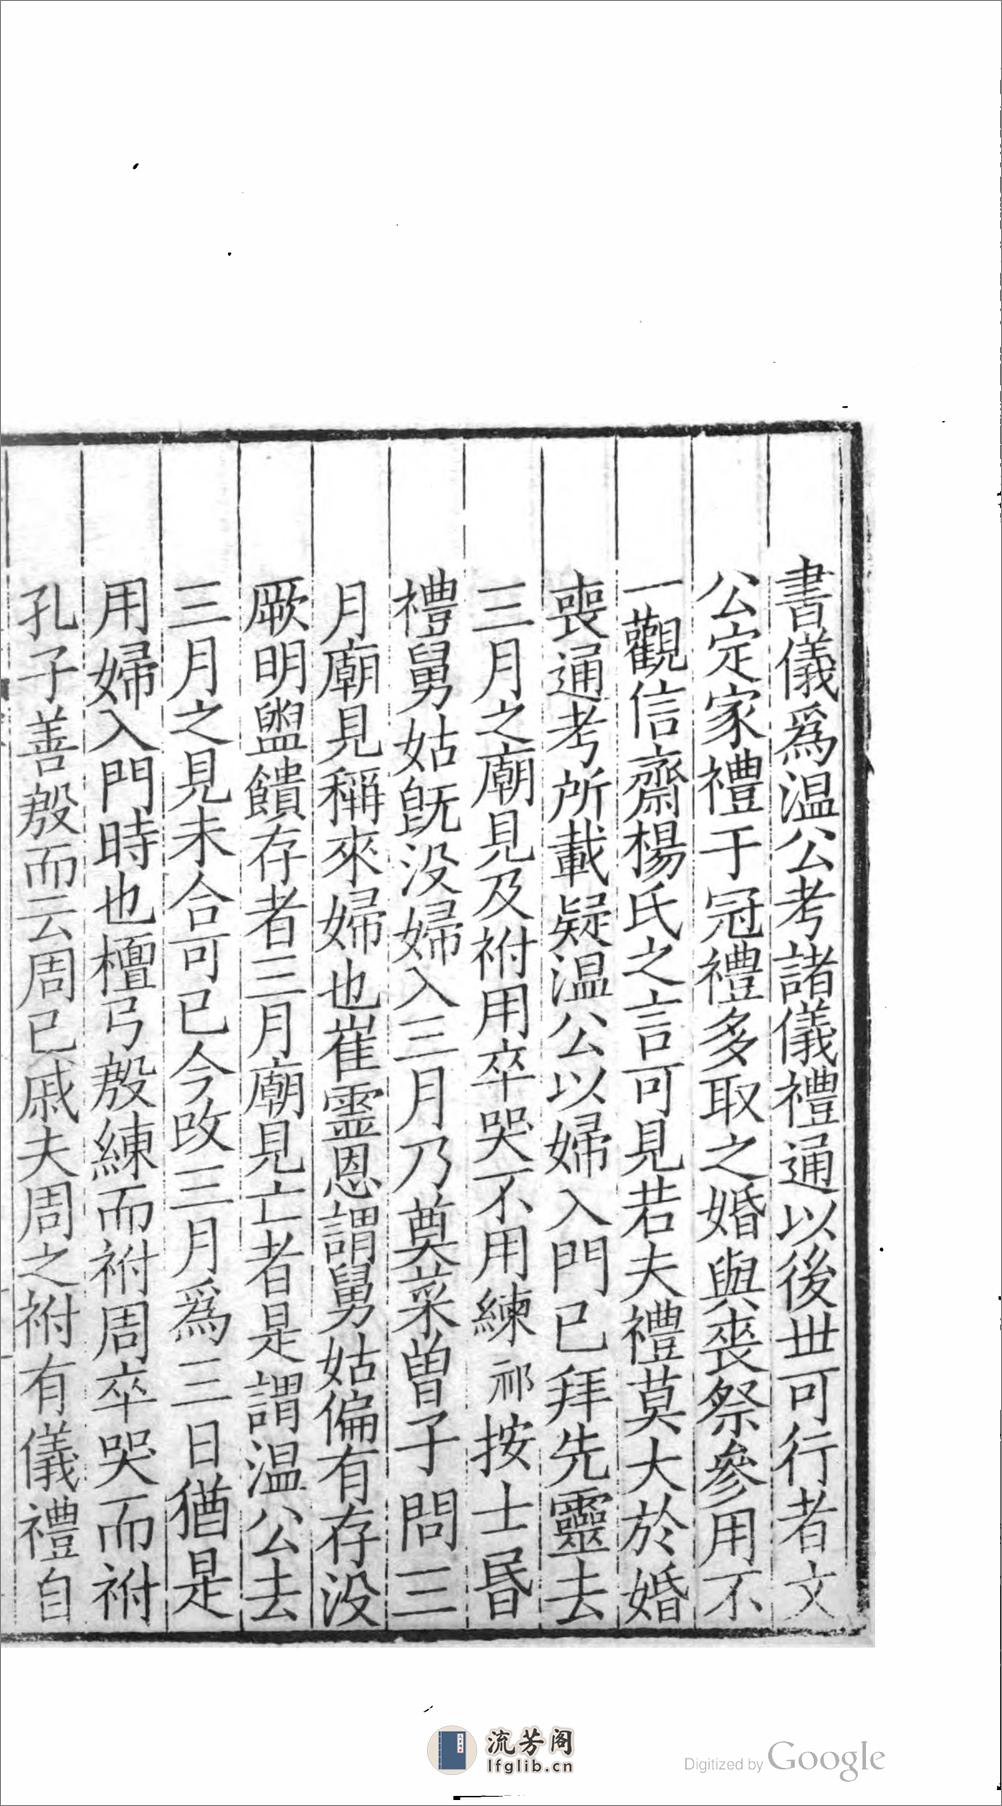 書儀爲温公考諸儀禮通以後世可行者文
公定家禮于冠禮多取之婚與喪祭參用不
一觀信齋楊氏之言可見若夫禮莫大於婚
喪通考所載疑温公以婦入門已拜先靈去
三月之廟見及祔用卒哭不用練祁按士昏
禮舅姑旣没婦入三月乃奠菜曾子問三
月廟見稱來婦也崔靈恩謂舅姑偏有存没
厥明盥饋存者三月廟見亡者是謂温公去
三月之見未合可已今改三月爲三日猶是
用婦入門時也檀弓殷練而祔周卒哭而祔
孔子善殷而云周已戚夫周之祔有儀禮自
流芳阁
lfglib.cn
Digitized by Google